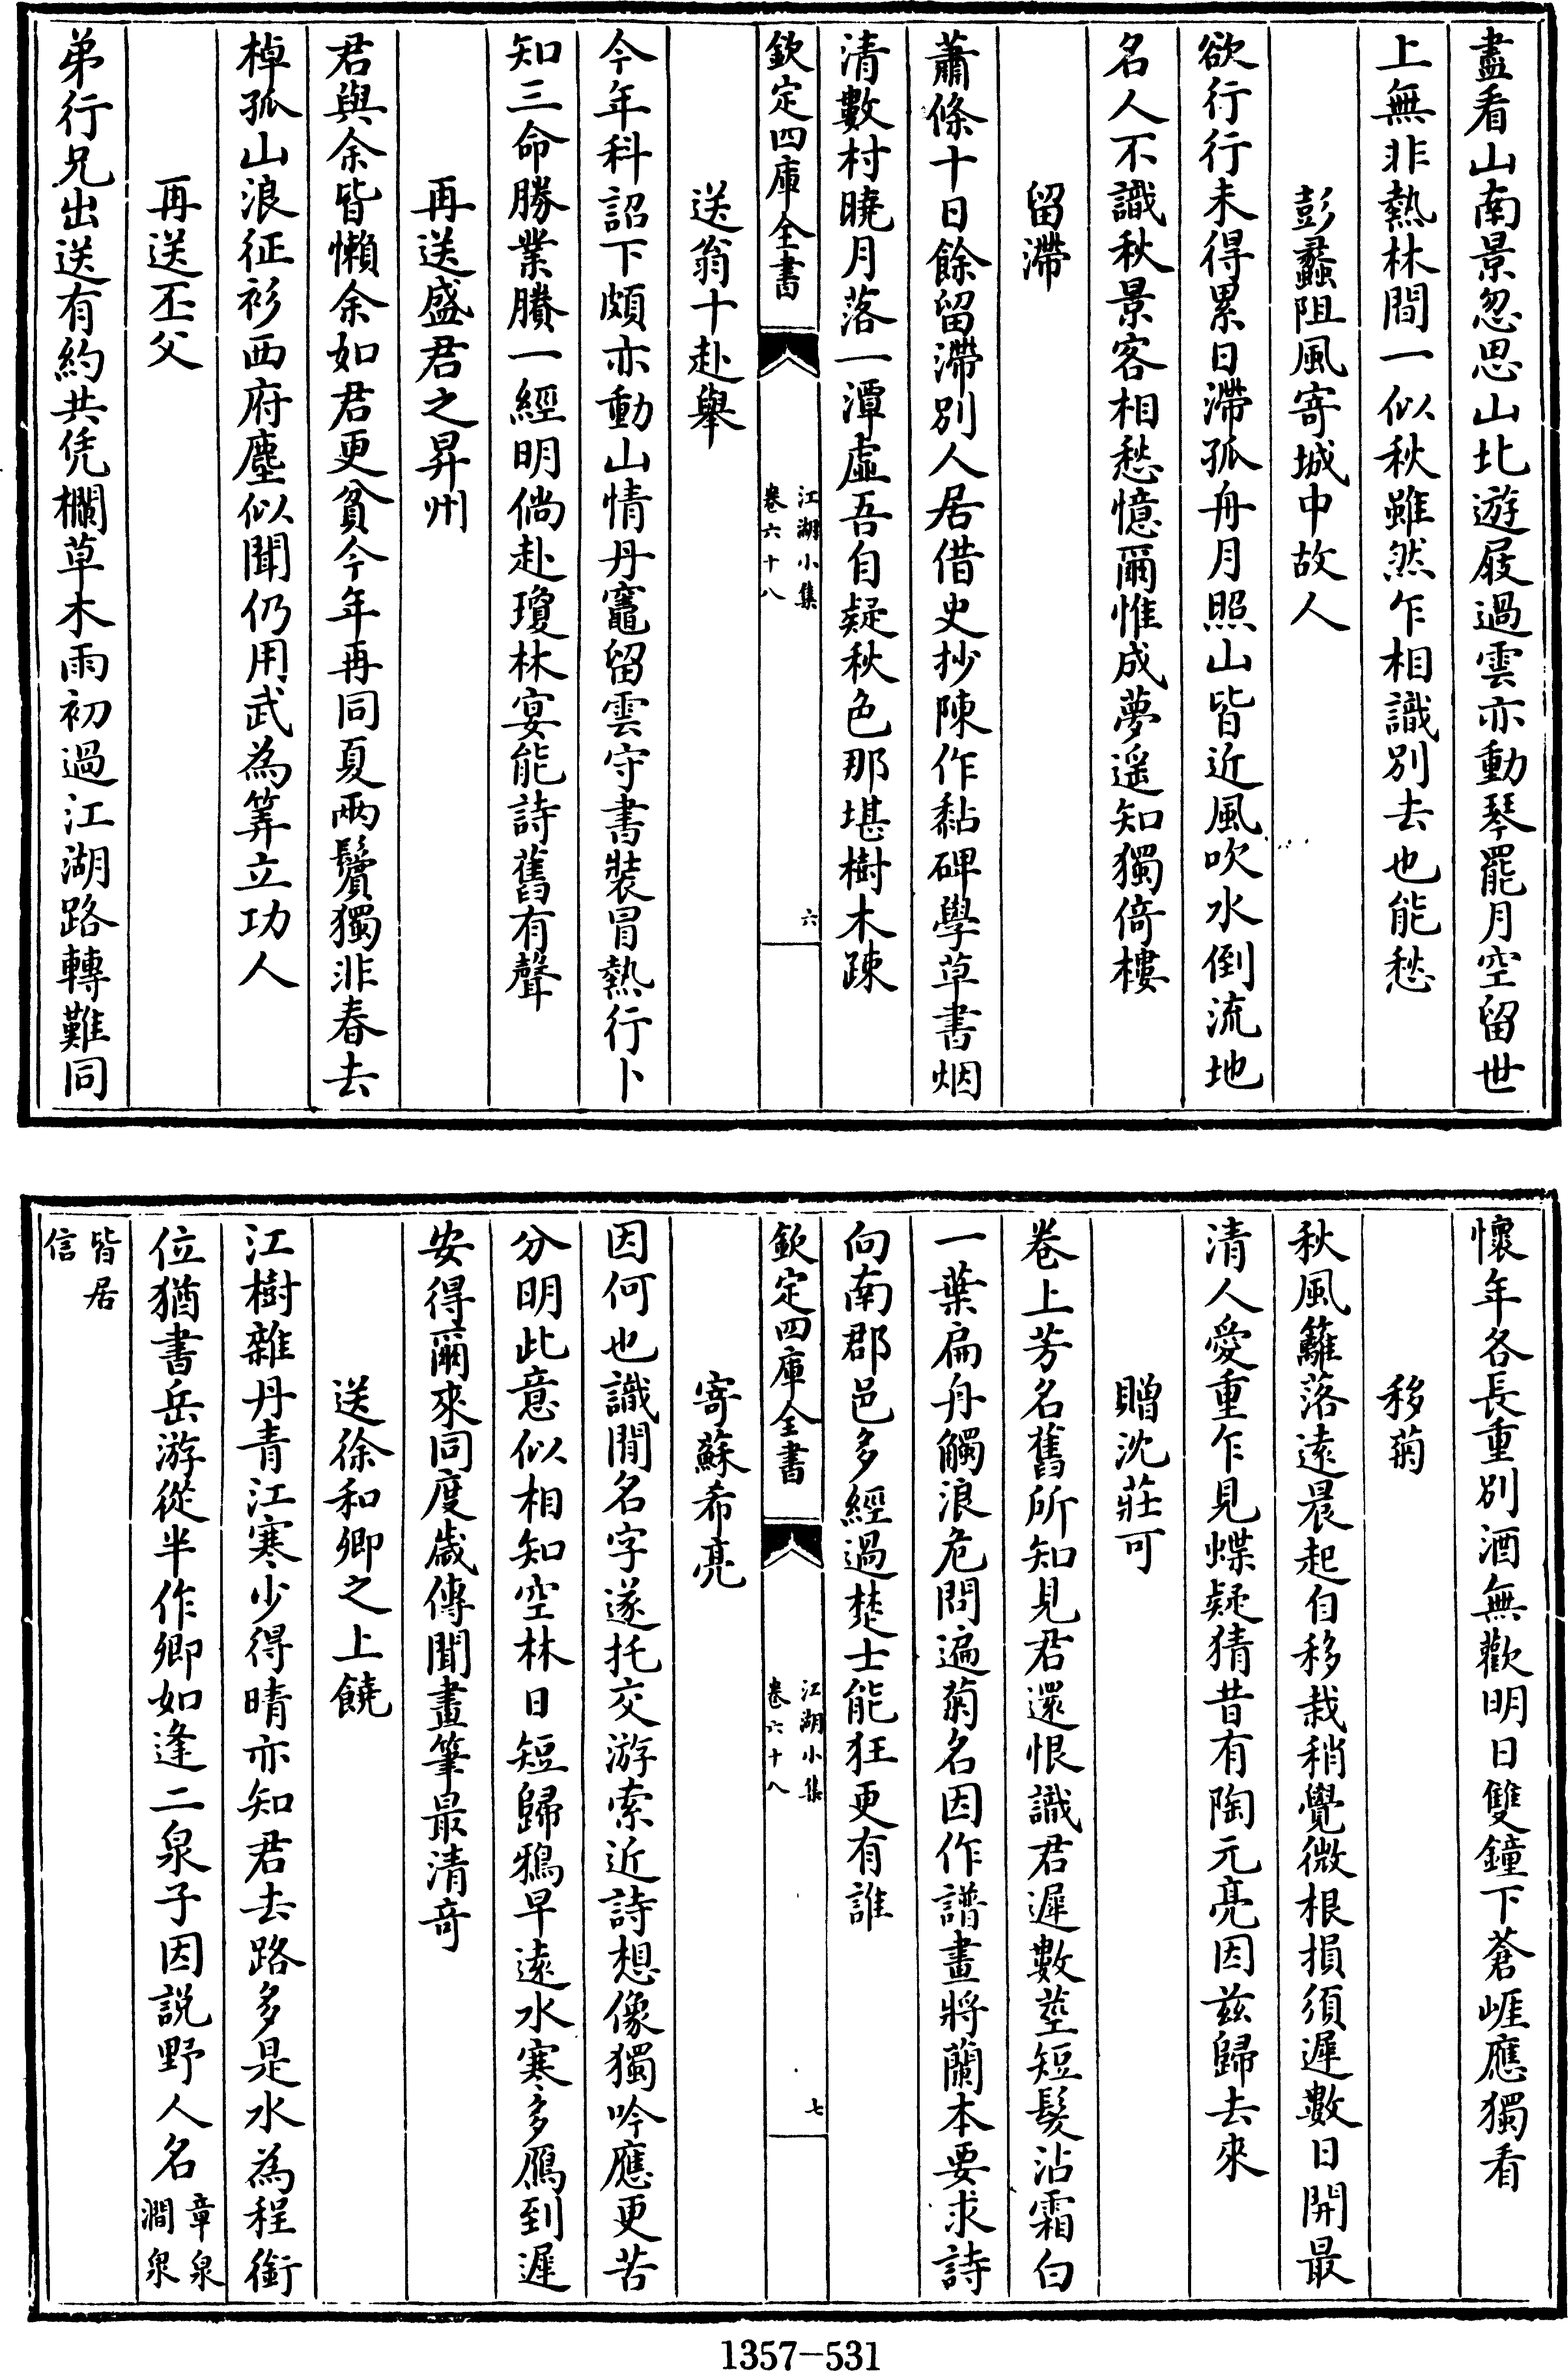 盡看山南景忽思山北遊屐過雲亦動琴罷月空留世
上無非熱林間一似秋雖然乍相識別去也能愁
彭蠡阻風寄城中故人
欲行行未得累日滯孤舟月照山皆近風吹水倒流地
名人不識秋景客相愁憶爾惟成夢遥知獨倚樓
留滯
蕭條十日餘留滯別人居借史抄陳作黏碑學草書烟
清數村曉月落一潭虛吾自疑秋色那堪樹木疎
欽定四庫全書
江湖小集
卷六十八
六
送翁十赴舉
今年科詔下頗亦動山情丹竈留雲守書裝冒熱行卜
知三命勝業賸一經明倘赴瓊林宴能詩舊有聲
再送盛君之昇州
君與余皆懶余如君更貧今年再同夏兩鬢獨非春去
棹孤山浪征衫西府塵似聞仍用武為筭立功人
再送丕父
弟行兄出送有約共凭欄草木雨初過江湖路轉難同
懷年各長重別酒無歡明日雙鐘下蒼崕應獨看
移菊
秋風籬落遠晨起自移栽稍覺微根損須遲數日開最
清人愛重乍見蝶疑猜昔有陶元亮因兹歸去來
贈沈莊可
卷上芳名舊所知見君還恨識君遲數莖短髮沾霜白
一葉扁舟觸浪危問遍菊名因作譜畫將蘭本要求詩
向南郡邑多經過楚士能狂更有誰
欽定四庫全書
江湖小集
卷六十八
七
寄蘇希亮
因何也識閒名字遂托交游索近詩想像獨吟應更苦
分明此意似相知空林日短歸鴉早遠水寒多鴈到遲
安得爾來同度歲傳聞畫筆最清奇
送徐和卿之上饒
江樹雜丹青江寒少得晴亦知君去路多是水為程銜
位猶書岳游從半作卿如逢二泉子因說野人名章泉
澗泉
皆居
信
1357-531